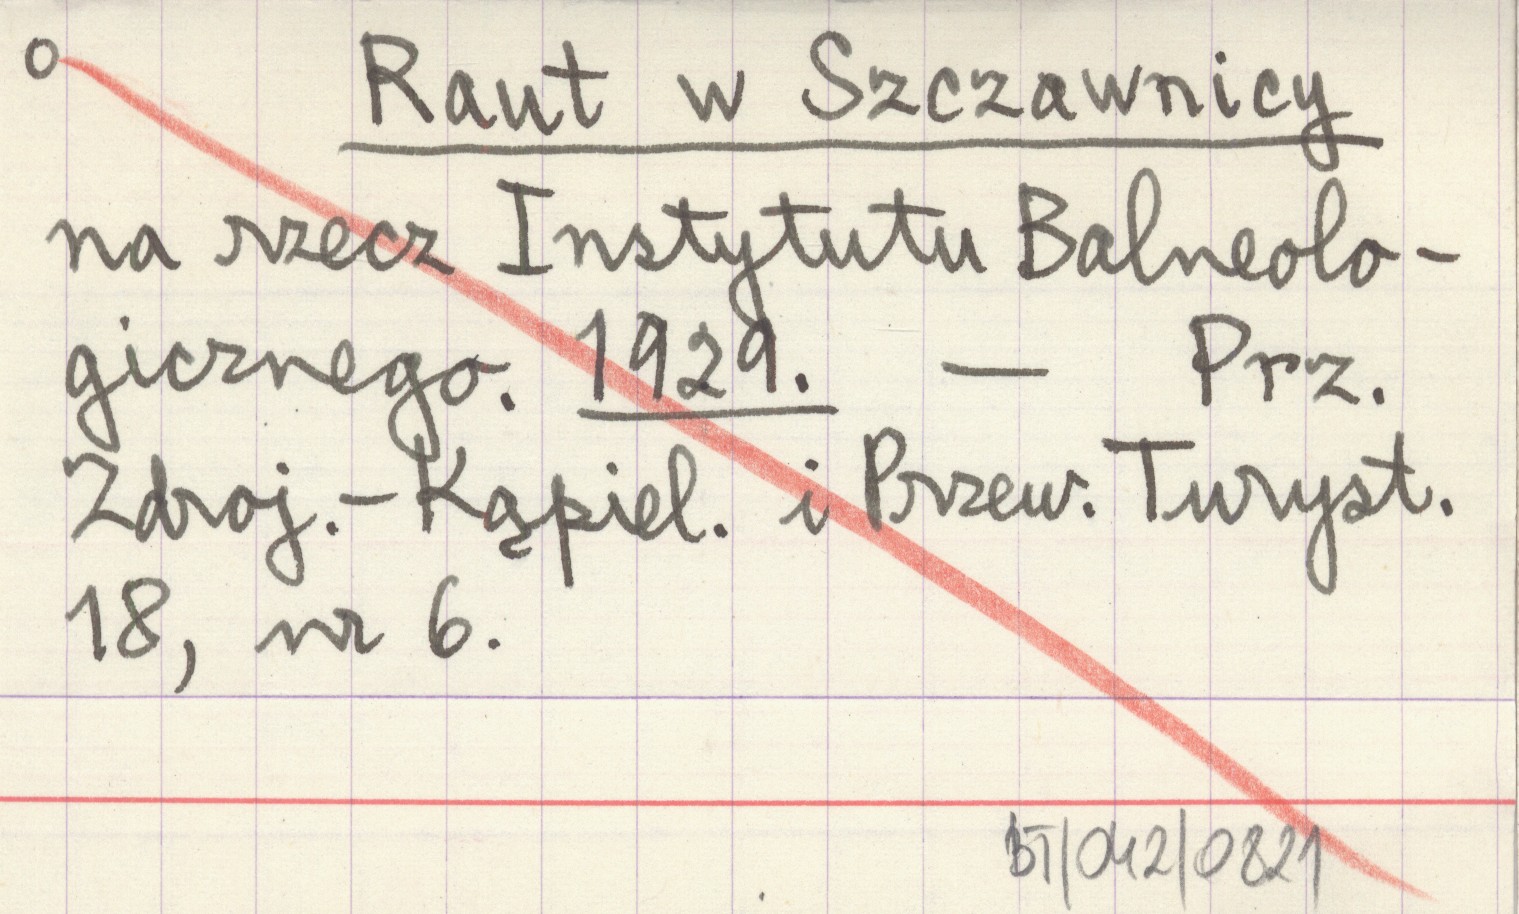 o Raut w Szczawnicy
na rzecz Instytutu Balneolo-
gicznego. 1929. — Prz.
Zdroj.-Kąpiel. i Przew. Turyst.
18, nr 6.
BT/042/0821